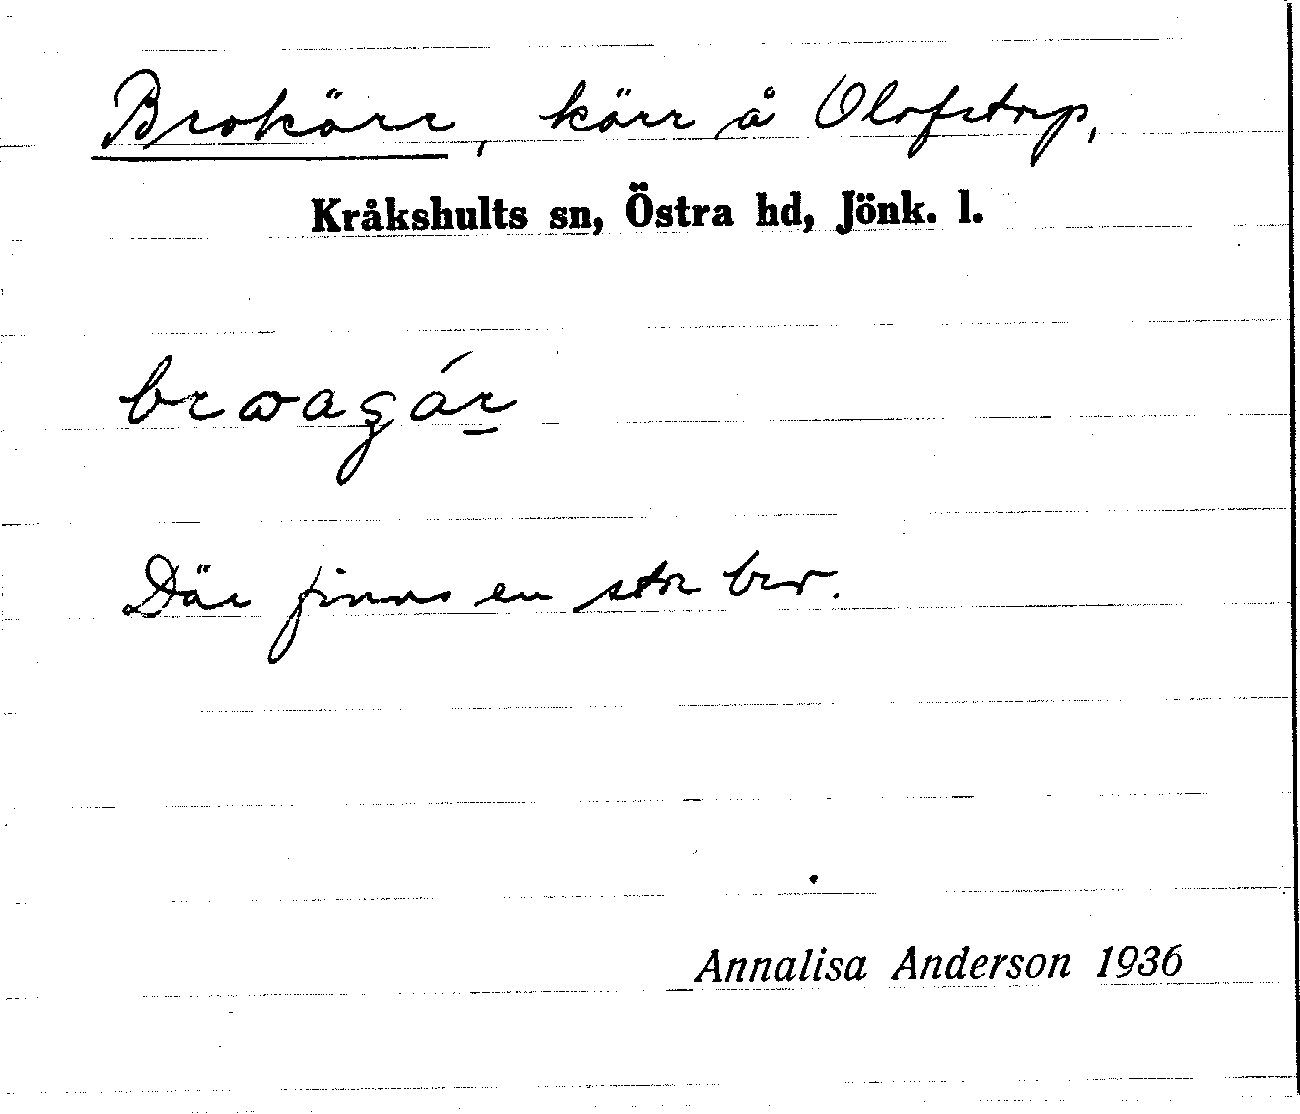 Brokärr, kärr å Olofstorp,
Kråkshults sn, Östra hd, Jönk. l.
Där finns en stor bro.
Annalisa Anderson 1936